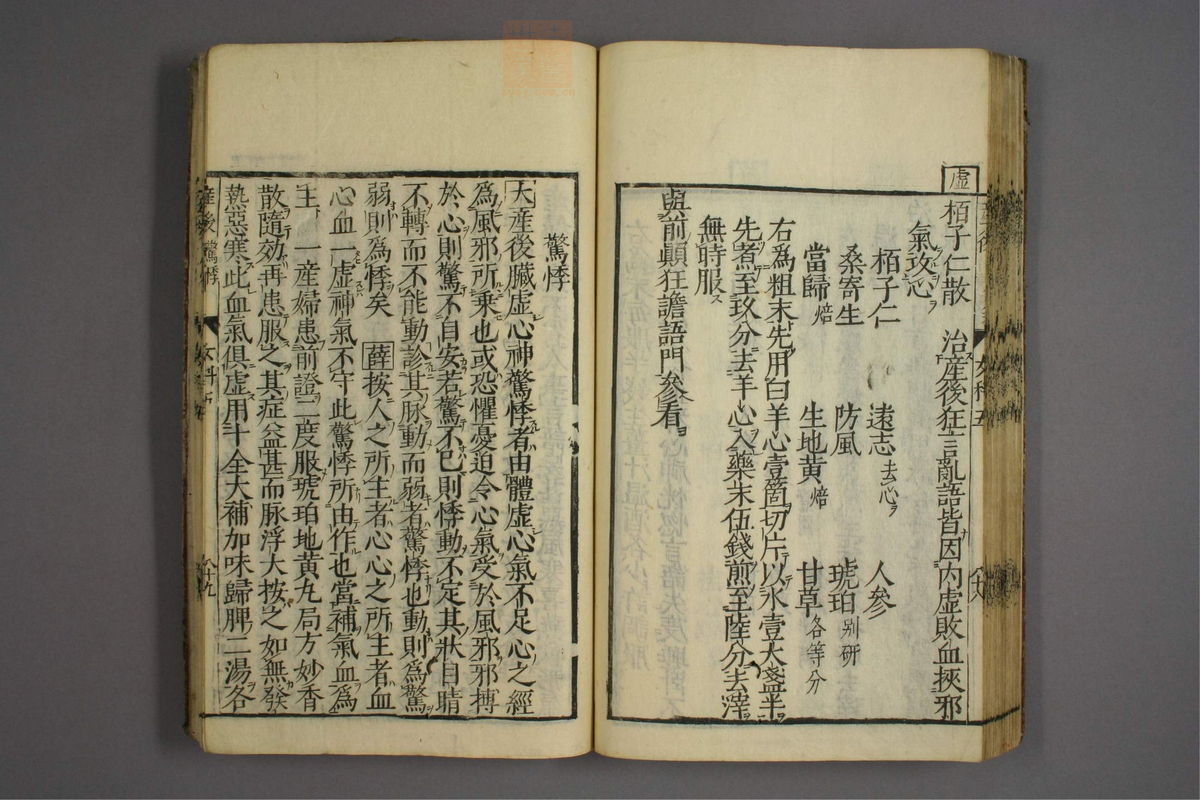 虛
栢子仁散　治産後狂言亂語皆因内虛敗血挾邪
氣攻心ヲ
栢子仁　遠志去心ヲ　人參
桑寄生　防風　琥珀别研
當歸焙　生地黄焙　甘草各等分
右爲粗末先用白羊心壹箇切片以水壹大盞半
先煮至玖分去羊心入藥末伍錢煎至陸分去滓
無時服ス
與前顚狂譫語門參看ヲ
驚悸
大産後臟虛心神驚悸者由體虛心氣不足心之經
爲風邪所乗也或恐懼憂迫令心氣受於風邪邪搏
於心則驚不自安若驚不已則悸動不定其狀目睛
不轉而不能動診其脉動而弱者驚悸也動則爲驚
弱則爲悸矣　薛按人之所主者心心之所主者血
心血一虛神氣不守此驚悸所由作也當補氣血爲
主　一産婦患前證二度服琥珀地黄丸局方妙香
散隨効再患服之其症益甚而脉浮大按之如無發
熱惡寒此血氣俱虛用十全大補加味歸脾二湯各
産後驚悸
八十九